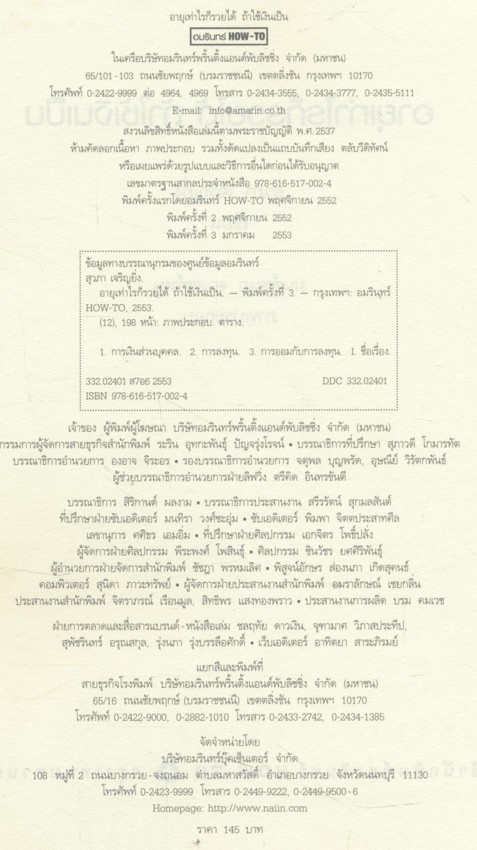 อายุเท่าไรก็รวยได้ ถ้าใช้เงินเป็น
อมรินทร์ HOW-TO
ในเครือบริษัทอมรินทร์พริ้นติ้งแอนด์พับลิชชิ่ง จำกัด (มหาชน)
65/101-103 ถนนชัยพฤกษ์ (บรมราชชนนี) เขตตลิ่งชัน กรุงเทพฯ 10170
โทรศัพท์ 0-2422-9999 ต่อ 4964, 4969 โทรสาร 0-2434-3555, 0-2434-3777, 0-2435-5111
E-mail: info@amarin.co.th
สงวนลิขสิทธิ์หนังสือเล่มนี้ตามพระราชบัญญัติ พ.ศ. 2537
ห้ามคัดลอกเนื้อหา ภาพประกอบ รวมทั้งดัดแปลงเป็นแถบบันทึกเสียง ตลับวีดิทัศน์
หรือเผยแพร่ด้วยรูปแบบและวิธีการอื่นใดก่อนได้รับอนุญาต
เลขมาตรฐานสากลประจำหนังสือ 978-616-517-002-4
พิมพ์ครั้งแรกโดยอมรินทร์ HOW-TO พฤศจิกายน 2552
พิมพ์ครั้งที่ 2 พฤศจิกายน 2552
พิมพ์ครั้งที่ 3 มกราคม 2553
ข้อมูลทางบรรณานุกรมของศูนย์ข้อมูลอมรินทร์
สุวภา เจริญยิ่ง.
อายุเท่าไรก็รวยได้ ถ้าใช้เงินเป็น. – พิมพ์ครั้งที่ 3. – กรุงเทพฯ: อมรินทร์
HOW-TO, 2553.
(12), 198 หน้า: ภาพประกอบ: ตาราง.
1. การเงินส่วนบุคคล. 2. การลงทุน. 3. การออมกับการลงทุน. I. ชื่อเรื่อง.
332.02401 ส7อ6 2553 DDC 332.02401
ISBN 978-616-517-002-4
เจ้าของ ผู้พิมพ์ผู้โฆษณา บริษัทอมรินทร์พริ้นติ้งแอนด์พับลิชชิ่ง จำกัด (มหาชน)
กรรมการผู้จัดการสายธุรกิจสำนักพิมพ์ ระริน อุทกะพันธุ์ ปัญจรุ่งโรจน์ • บรรณาธิการที่ปรึกษา สุภาวดี โกมารทัต
บรรณาธิการอำนวยการ องอาจ จิระอร • รองบรรณาธิการอำนวยการ จตุพล บุญพรัด, อุษณีย์ วิรัตกพันธ์
ผู้ช่วยบรรณาธิการอำนวยการฝ่ายลิฟวิ่ง ตรีคิด อินทรขันตี
บรรณาธิการ สิริกานต์ ผลงาม • บรรณาธิการประสานงาน สรีรรัตน์ สุกมลสันต์
ที่ปรึกษาฝ่ายซับเอดิเตอร์ มนทิรา วงศ์ชะอุ่ม • ซับเอดิเตอร์ พิมพา จิตตประสาทศีล
เลขานุการ ศศิธร เอมอิ่ม • ที่ปรึกษาฝ่ายศิลปกรรม เอกจิตร โพธิ์ปลั่ง
ผู้จัดการฝ่ายศิลปกรรม พีระพงศ์ โพสินธุ์ • ศิลปกรรม ชินวัชร ยศศิริพันธุ์
ผู้อำนวยการฝ่ายจัดการสำนักพิมพ์ ชัชฎา พรหมเลิศ • พิสูจน์อักษร ส่องนภา เกิดสุคนธ์
คอมพิวเตอร์ สุนิตา ภาวะทรัพย์ • ผู้จัดการฝ่ายประสานงานสำนักพิมพ์ อมราลักษณ์ เชยกลิ่น
ประสานงานสำนักพิมพ์ จิตราภรณ์ เรือนมูล, สิทธิพร แสงทองพราว • ประสานงานการผลิต บรม คมเวช
ฝ่ายการตลาดและสื่อสารแบรนด์-หนังสือเล่ม ชลฤทัย ดาวเงิน, จุฑามาศ วิภาสประทีป,
สุพัชรินทร์ อรุณสกุล, รุ่งนภา รุ่งบรรลือศักดิ์ • เว็บเอดิเตอร์ อาทิตยา สาระภิรมย์
แยกสีและพิมพ์ที่
สายธุรกิจโรงพิมพ์ บริษัทอมรินทร์พริ้นติ้งแอนด์พับลิชชิ่ง จำกัด (มหาชน)
65/16 ถนนชัยพฤกษ์ (บรมราชชนนี) เขตตลิ่งชัน กรุงเทพฯ 10170
โทรศัพท์ 0-2422-9000, 0-2882-1010 โทรสาร 0-2433-2742, 0-2434-1385
จัดจำหน่ายโดย
บริษัทอมรินทร์บุ๊คเซ็นเตอร์ จำกัด
108 หมู่ที่ 2 ถนนบางกรวย-จงถนอม ตำบลมหาสวัสดิ์ อำเภอบางกรวย จังหวัดนนทบุรี 11130
โทรศัพท์ 0-2423-9999 โทรสาร 0-2449-9222, 0-2449-9500-6
Homepage: http://www.naiin.com
ราคา 145 บาท